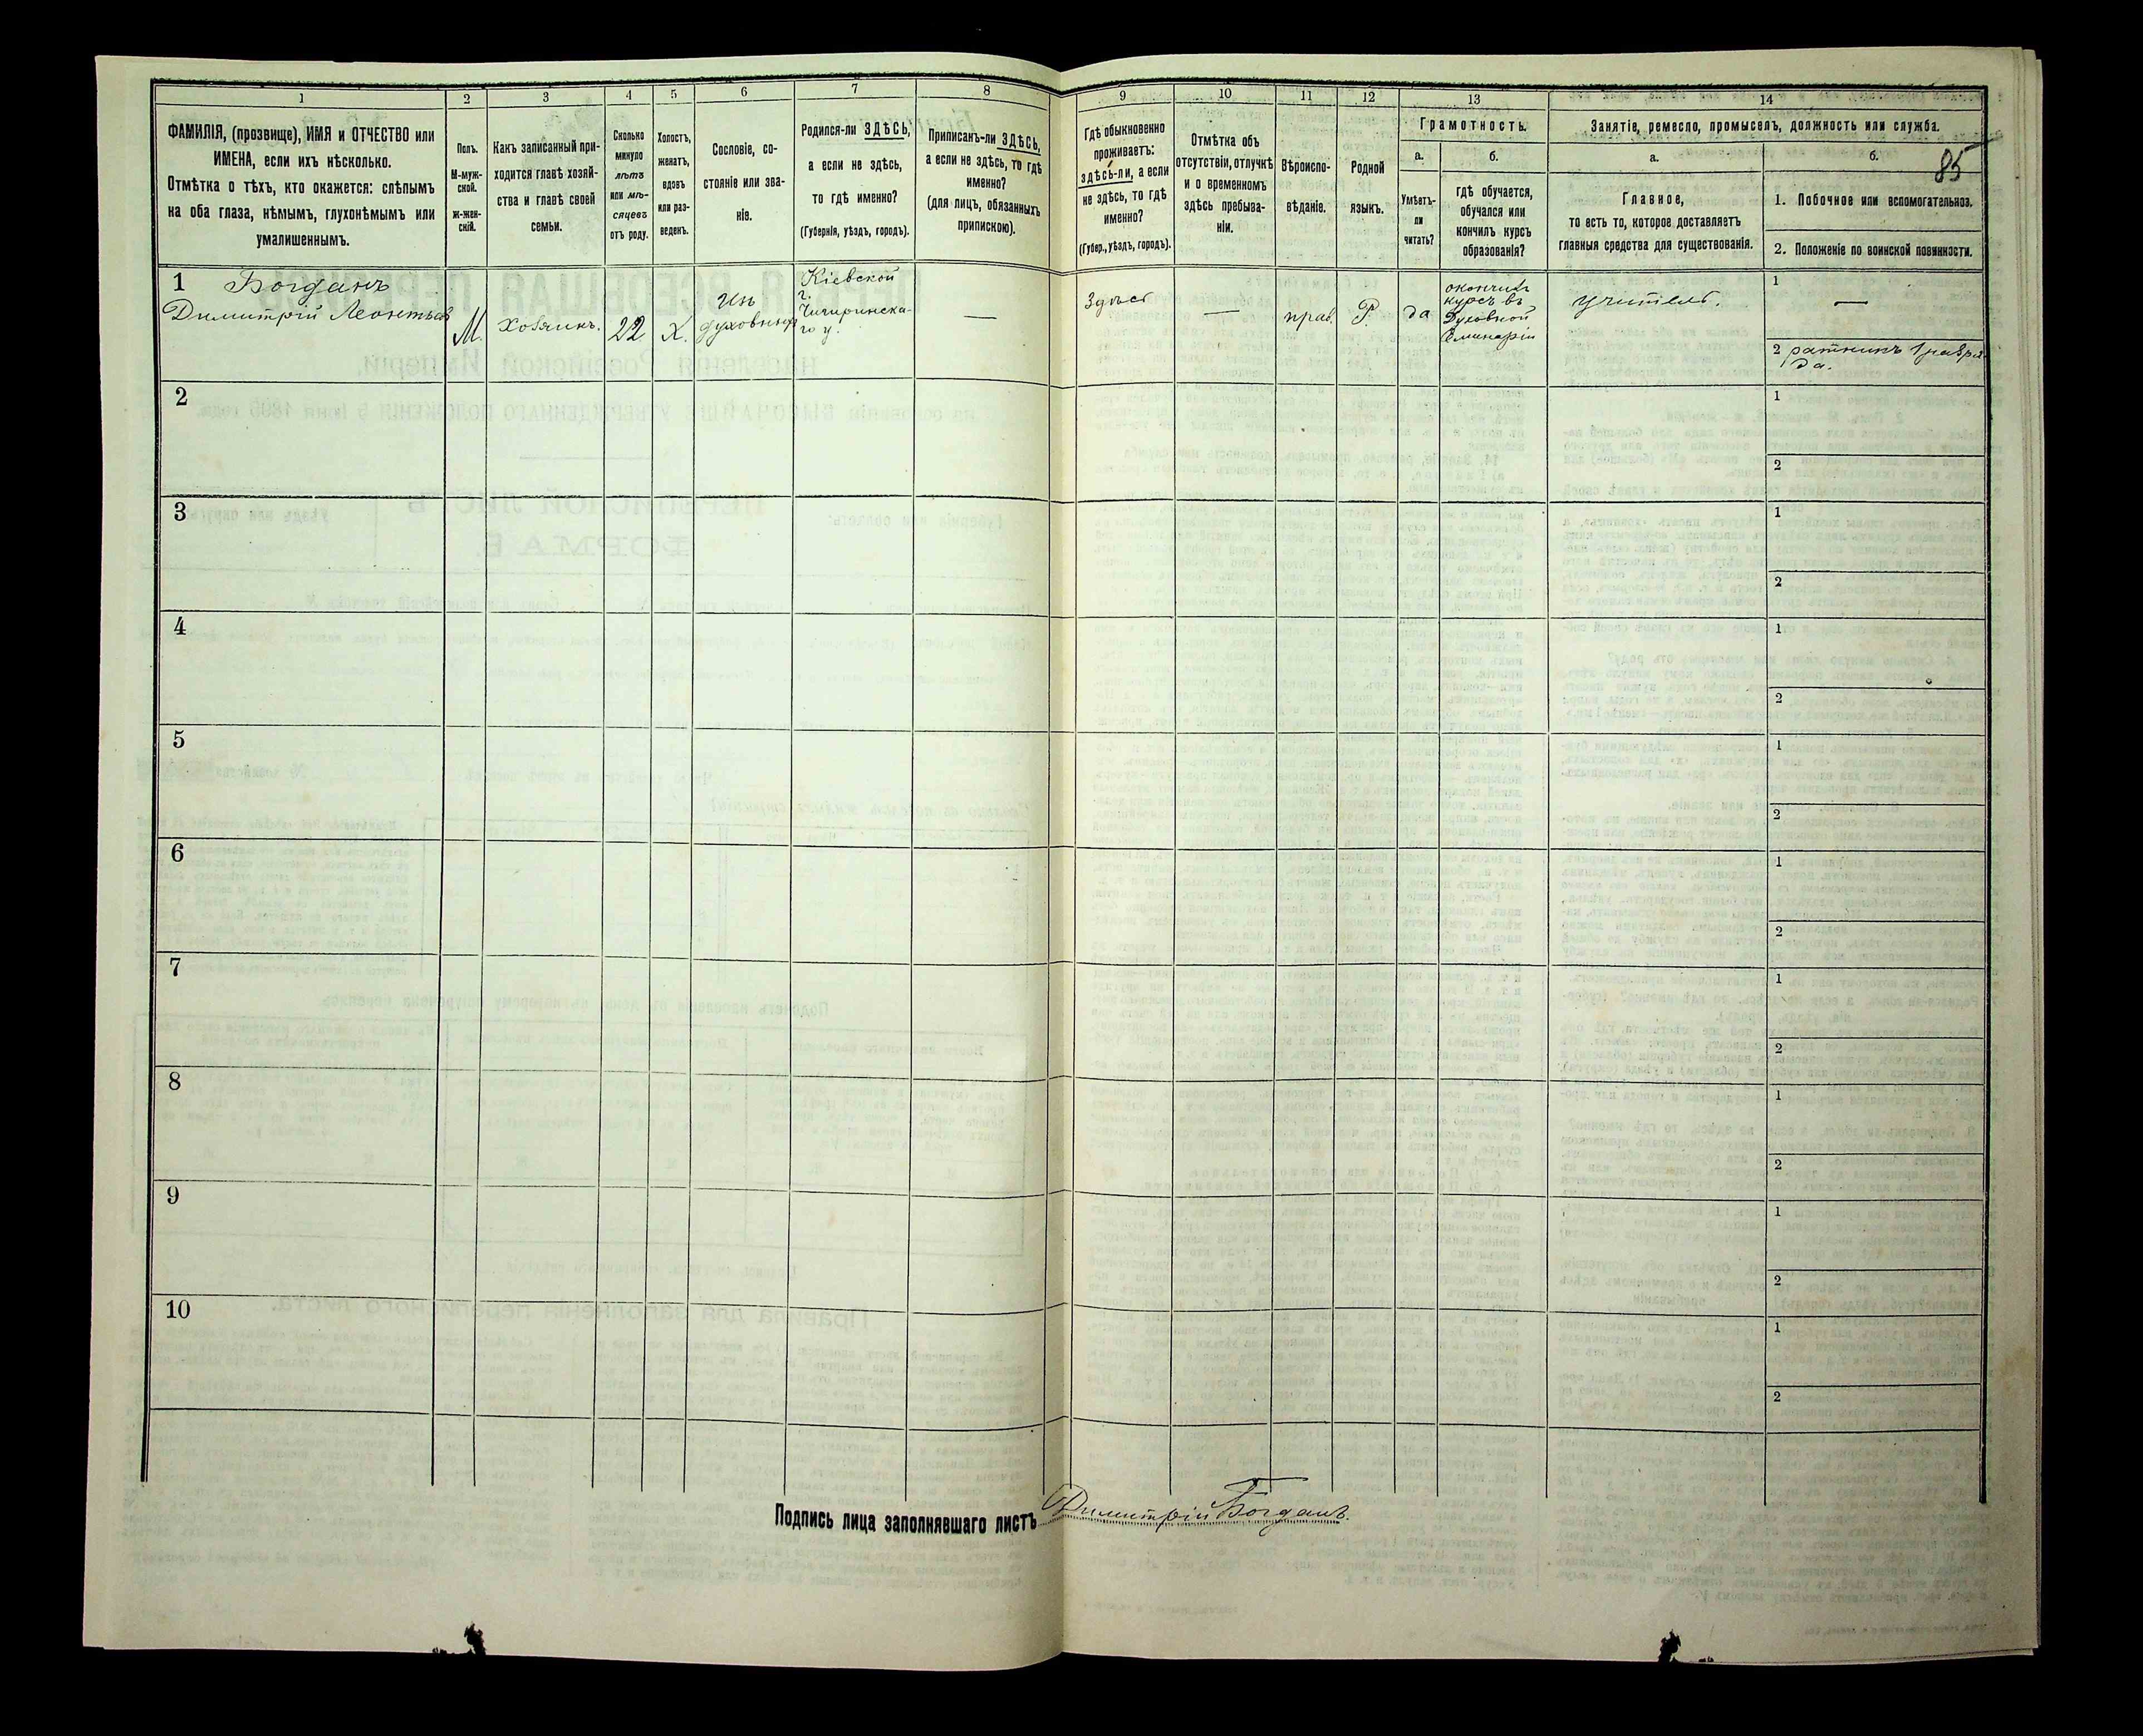 1
2
3
4
5
6
7
8
9
10
11
12
13
14
ФАМИЛІЯ, (прозвище), ИМЯ и ОТЧЕСТВО или
ИМЕНА, если ихъ нѣсколько.
Отмѣтка о тѣхъ, кто окажется: слѣпымъ
на оба глаза, нѣмымъ, глухонѣмымъ или
умалишеннымъ.
Полъ.
М-муж-
ской.
ж-жен-
скій.
Какъ записанный при-
ходится главѣ хозяй-
ства и главѣ своей
семьи.
Сколько
минуло
лѣтъ
или мѣ-
сяцевъ
отъ роду.
Холостъ,
женатъ,
вдовъ
или раз-
веденъ.
Сословіе, со-
стояніе или зва-
ніе.
Родился-ли ЗДѢСЬ,
а если не здѣсь,
то гдѣ именно?
(Губернія, уѣздъ, городъ).
Приписанъ-ли ЗДѢСЬ,
а если не здѣсь, то гдѣ
именно?
(для лицъ, обязанныхъ
припискою).
Гдѣ обыкновенно
проживаетъ:
здѣсь-ли, а если
не здѣсь, то гдѣ
именно?
(Губер., уѣздъ, городъ).
Отмѣтка объ
отсутствіи, отлучкѣ
и о временномъ
здѣсь пребыва-
ніи.
Вѣроиспо-
вѣданіе.
Родной
языкъ.
Грамотность.
а.
Умѣетъ-
ли
читать?
б.
гдѣ обучается,
обучался или
кончилъ курсъ
образованія?
Занятіе, ремесло, промыселъ, должность или служба.
а.
Главное,
то есть то, которое доставляетъ
главныя средства для существованія.
б.
85
1. Побочное или вспомогательное.
2. Положеніе по воинской повинности.
1
Богданъ
Димитрій Леонтьев
М.
хозяинъ.
22
Х.
духовныхъ
Кіевской
г.
Чигиринска-
го у.
—
Здѣсь
—
прав.
Р.
да
окончилъ
курсъ въ
Духовной
Семинаріи
учитель.
1
—
2 ратникъ 1 разря-
да.
2
1
2
3
1
2
4
1
2
5
1
2
6
1
2
7
1
2
8
1
2
9
1
2
10
1
2
Подпись лица заполнявшаго листъ Димитрій Богданъ.